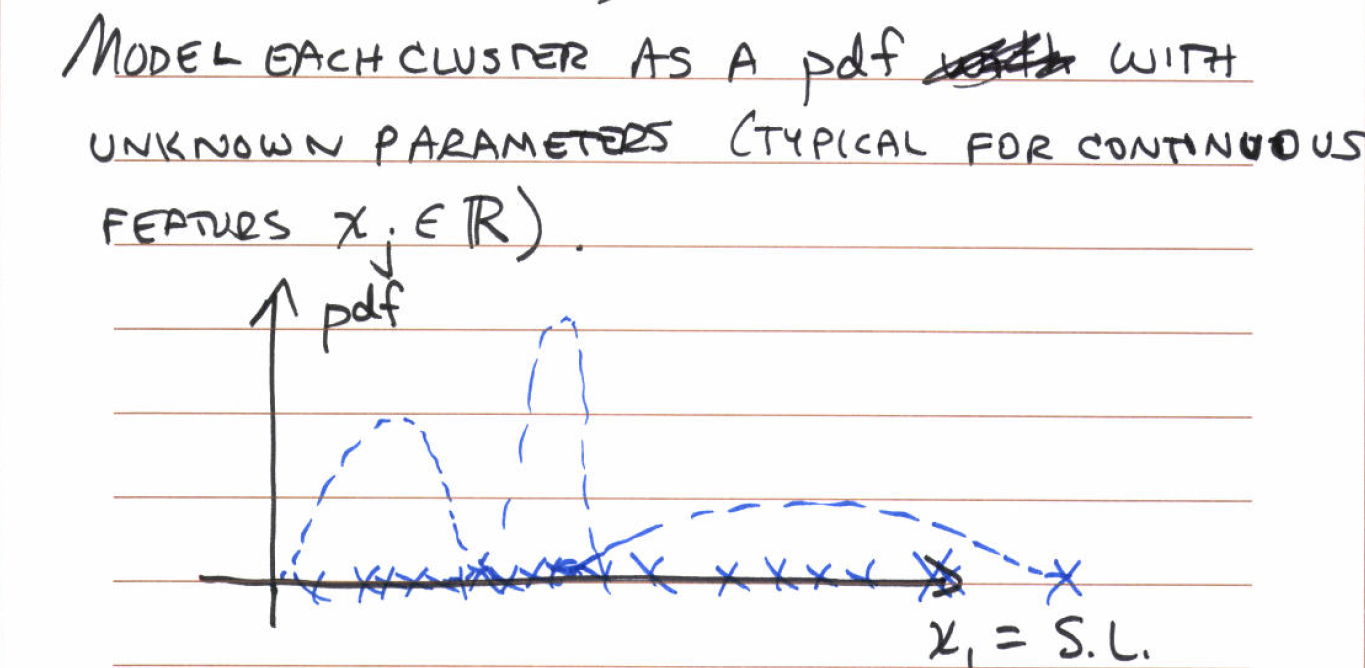 MODEL EACH CLUSTER AS A pdf WITH
UNKNOWN PARAMETERS (TYPICAL FOR CONTINUOUS
FEATURS x_j ∈ ℝ).
pdf
x₁ = S.L.